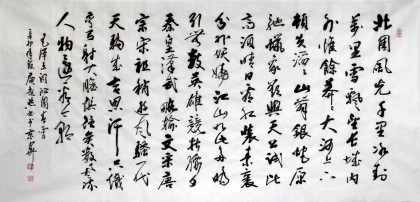 北國風光千里冰封
萬里雪飄望長城内
外惟餘莽莽大河上下
頓失滔滔山舞銀蛇原
馳蠟象欲與天公試比
高須晴日看紅裝素裹
分外妖嬈江山如此多嬌
引無數英雄競折腰惜
秦皇漢武略輸文采唐
宗宋祖稍遜風騷一代
天驕成吉思汗只識
彎弓射大雕俱往矣數風流
人物還看今朝
毛澤東詞沁園春雪
辛卯年